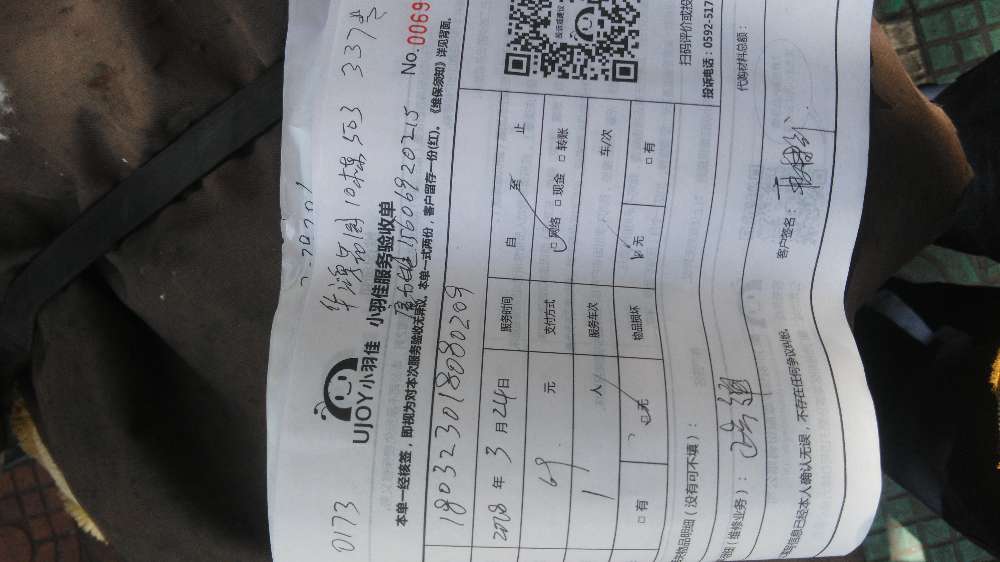 0173 华濠名园10栋503 337号
UJOY小羽佳 小羽佳服务验收单 15606920215 No.0069
本单一经核签，即视为对本次服务验收无异议。本单一式两份，客户留存一份(红)。《维保须知》详见背面。
180323018080209
2018年3月24日 服务时间 自 至 止
69 元 支付方式 网络 □现金 □转账
1 人 服务车次 车/次
□有 无 物品损坏 无 □有
扫码评价或投
投诉电话：0592-517
物品明细（没有可不填）：
代购材料总额：
（维修业务）：
填写信息已经本人确认无误，不存在任何争议纠纷。 客户签名：